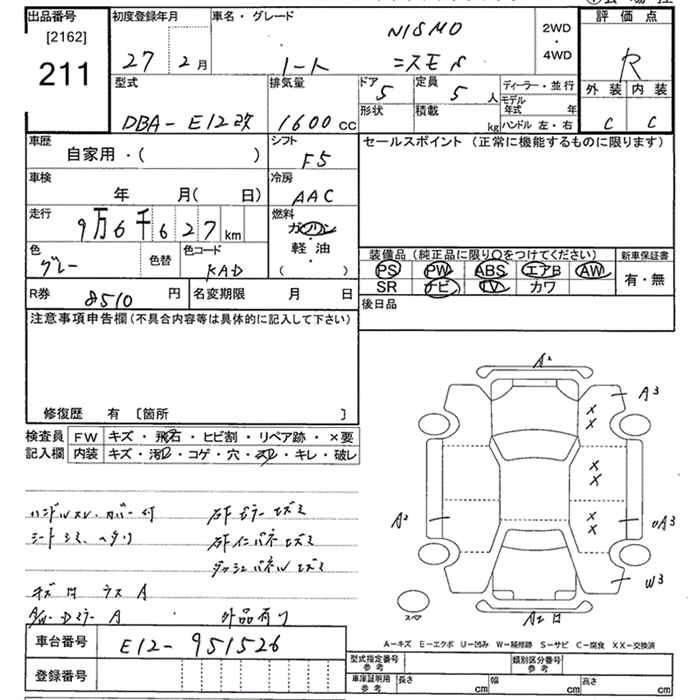 出品番号
[2162]
211
初度登録年月
27 2月
車名・グレード
NISMO
ノート ニスモS
2WD
・
4WD
評価点
R
外装 内装
C C
型式
DBA-E12改
排気量
1600 CC
ドア
5
形状
定員
5 人
積載
kg
ディーラー・並行
モデル年式 年
ハンドル 左・右
車歴
自家用・( )
シフト
F5
車検
年 月( 日)
冷房
AAC
走行
9万6千627km
燃料
ガソリン
・
軽油
・
( )
色
グレー
色替
色コード
KAD
R券
8510 円
名変期限 月 日
セールスポイント (正常に機能するものに限ります)
装備品 (純正品に限り○をつけてください)
PS PW ABS エアB AW
SR ナビ TV カワ
新車保証書
有・無
後日品
注意事項申告欄(不具合内容等は具体的に記入して下さい)
修復歴 有 〔箇所 〕
検査員
記入欄
FW キズ・飛石・ヒビ割・リペア跡・×要
内装 キズ・汚れ・コゲ・穴・スレ・キレ・破レ
ハンドルスレ、カバー付
シートシミ、ヘタリ
キズ凹 ラス A
右Fピラーヒズミ
右Fインパネヒズミ
ダッシュパネルヒズミ
外品有り
A2
A3
X
X
X
X
X
X
A2
A3
W3
スペア
A2 凹
A-キズ E-エクボ U-凹み W-補修跡 S-サビ C-腐食 XX-交換済
車台番号
E12-951526
登録番号
型式指定番号
参考
類別区分番号
参考
車庫証明用
参考
長さ cm
幅 cm
高さ cm